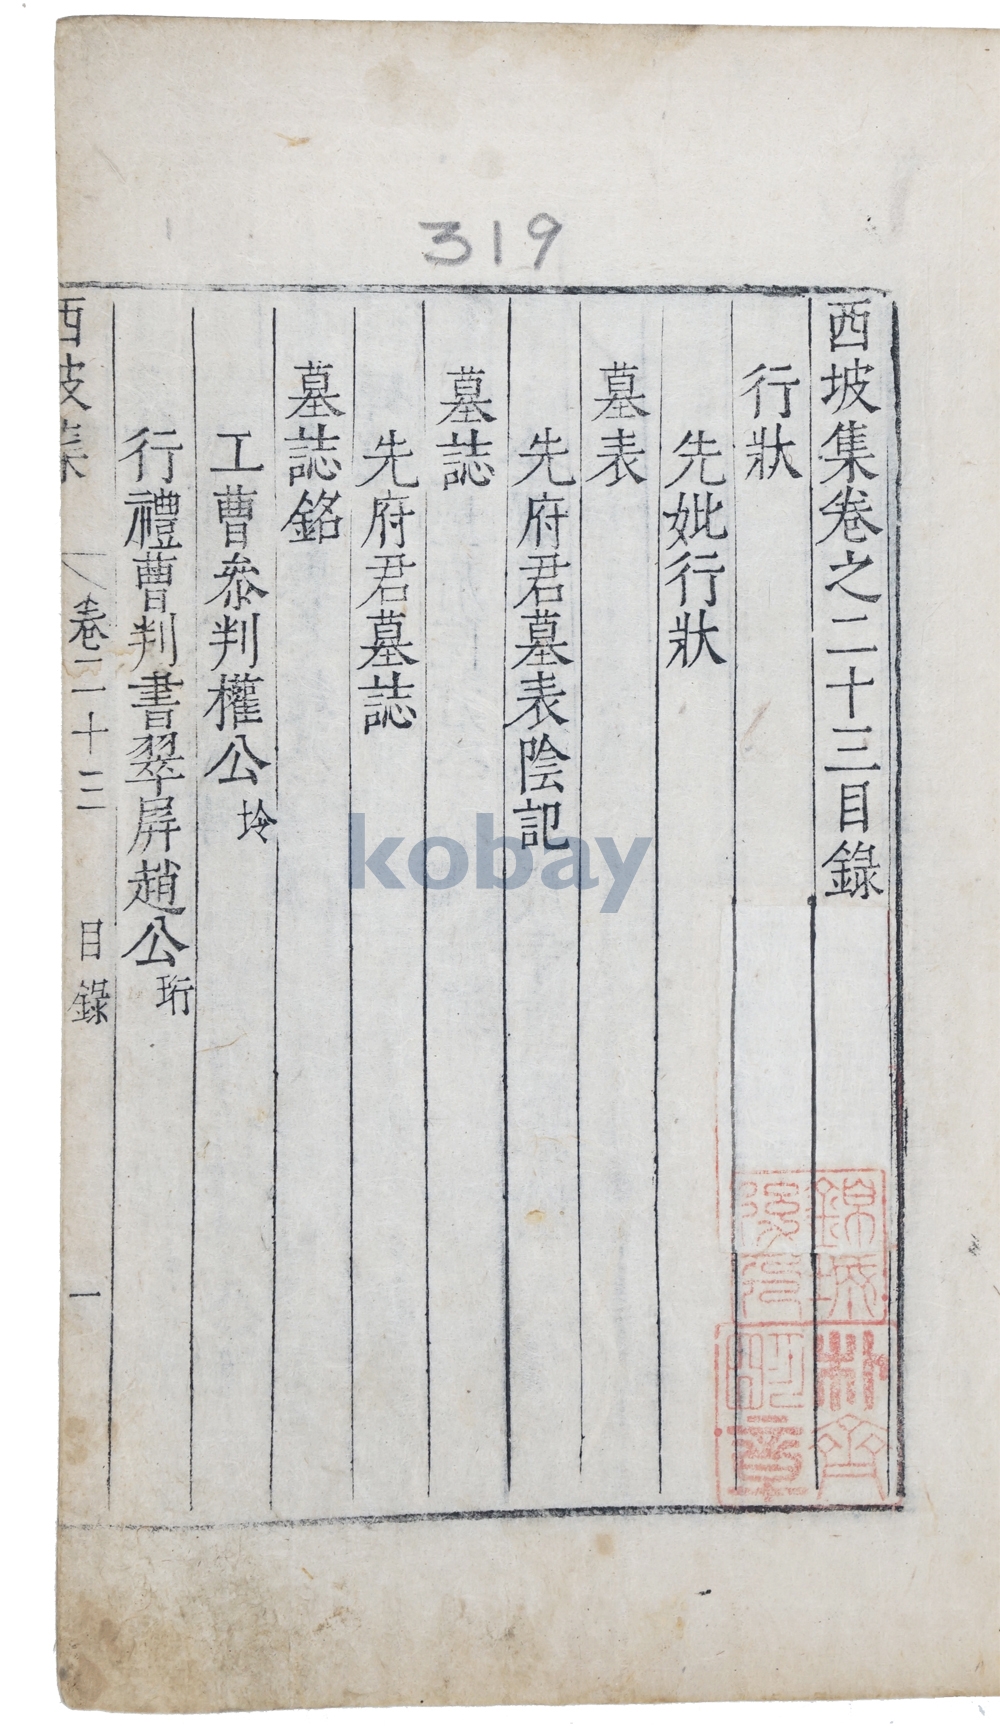 319
西坡集卷之二十三目錄
行狀
先妣行狀
墓表
先府君墓表陰記
墓誌
先府君墓誌
墓誌銘
工曹叅判權公坽
行禮曹判書翠屏趙公珩
西坡集 卷二十三 目錄 一
kobay